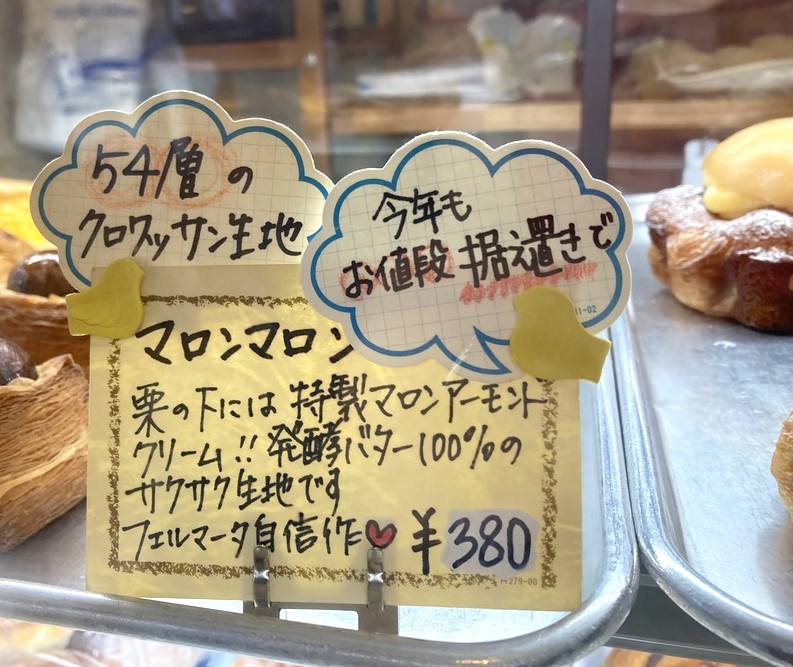 54層の
クロワッサン生地
今年も
お値段据え置きで
11-02
マロンマロン
栗の下には特製マロンアーモンド
クリーム!!発酵バター100%の
サクサク生地です
フェルマータ自信作♥ ¥380
279-00